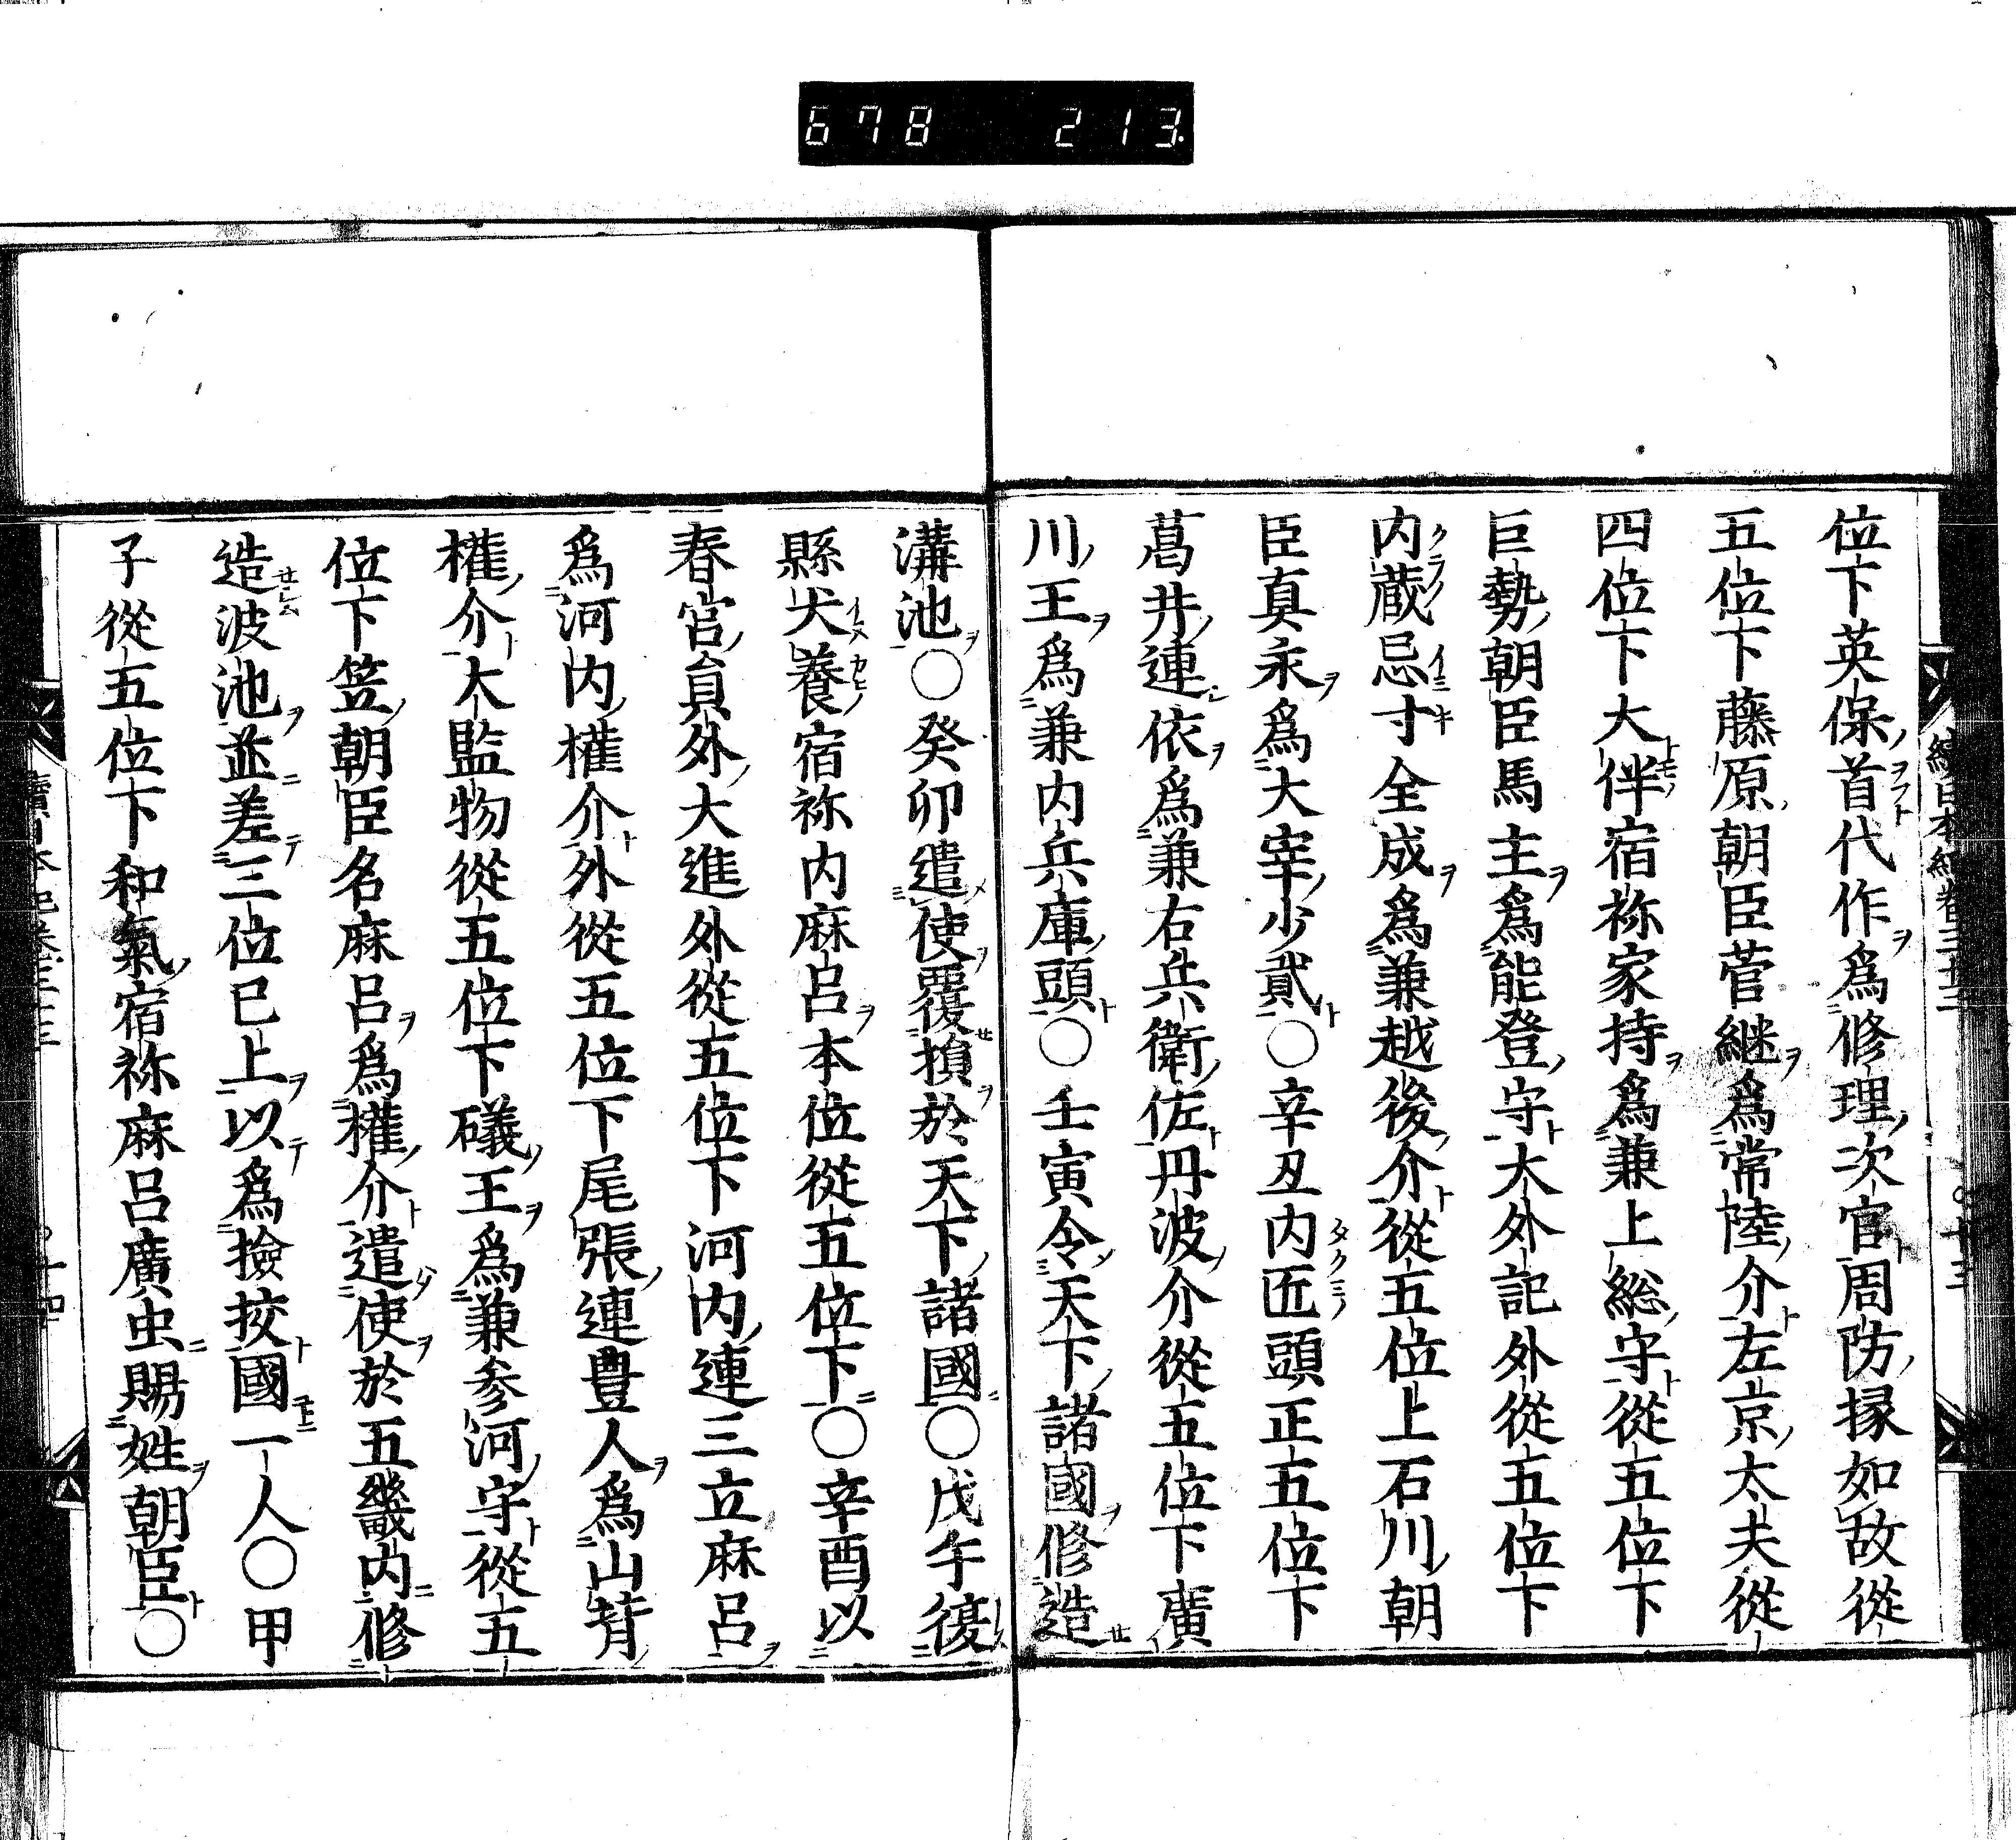 678 213
位下英保首代作爲修理次官周防掾如故從
五位下藤原朝臣菅継爲常陸介左京大夫從
四位下大伴宿祢家持爲兼上総守從五位下
巨勢朝臣馬主爲能登守大外記外從五位下
内蔵忌寸全成爲兼越後介從五位上石川朝
臣真永爲大宰少貳○辛丑内匠頭正五位下
葛井連依爲兼右兵衛佐丹波介從五位下廣
川王爲兼内兵庫頭○壬寅令天下諸國修造
溝池○癸卯遣使覆損於天下諸國○戊午復
縣犬養宿祢内麻呂本位從五位下○辛酉以
春宮貟外大進外從五位下河内連三立麻呂
爲河内權介外從五位下尾張連豊人爲山背
權介大監物從五位下礒王爲兼参河守從五
位下笠朝臣名麻呂爲權介遣使於五畿内修
造波池並差三位已上以爲撿挍國一人○甲
子從五位下和氣宿祢麻呂廣虫賜姓朝臣○